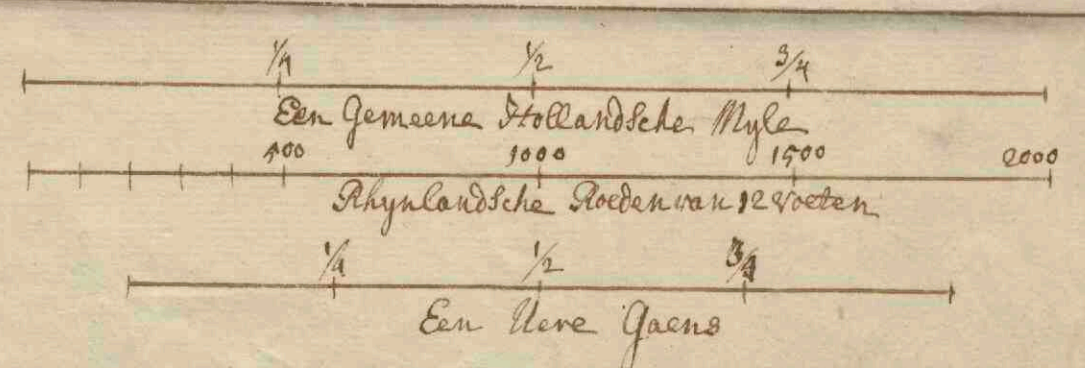 1/4 1/2 3/4
Een Gemeene Hollandsche Myle
500 1000 1500 2000
Rhynlandsche Roeden van 12 voeten
1/4 1/2 3/4
Een Uere Gaens